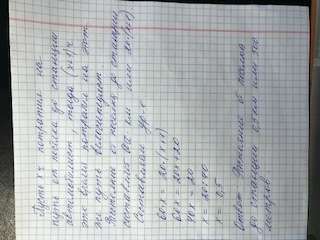 Пусть x ч потратил на
путь от посёлка до станции
автомобилист, тогда (x+1) ч
это время потратил на этот
же путь велосипедист
Расстояние от поселка до станции
составляет 60x км или 20·(x+1)
Составляем ур-е
60·x = 20·(x+1)
60x = 20x+20
40x = 20
x = 20:40
x = 0,5
Ответ: Расстояние от поселка
до станции 0,5 км или 500
метров